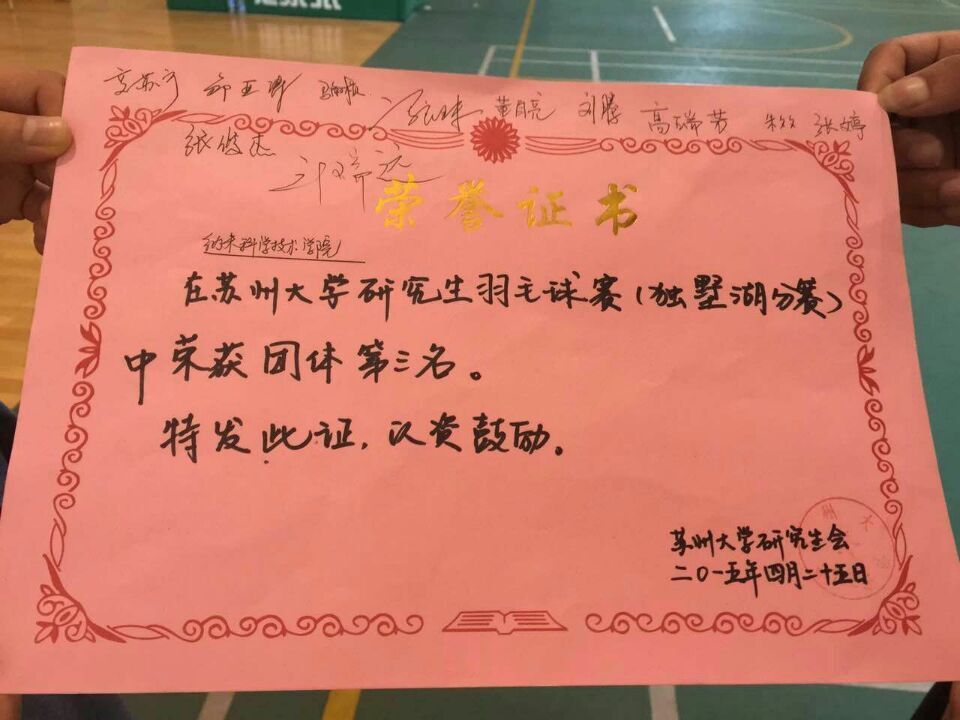 张味 黄月亮 刘腾 高瑞芳 张婷
张俊杰
荣誉证书
纳米科学技术学院
在苏州大学研究生羽毛球赛(独墅湖分赛)
中荣获团体第三名。
特发此证,以资鼓励。
苏州大学研究生会
二〇一五年四月二十五日